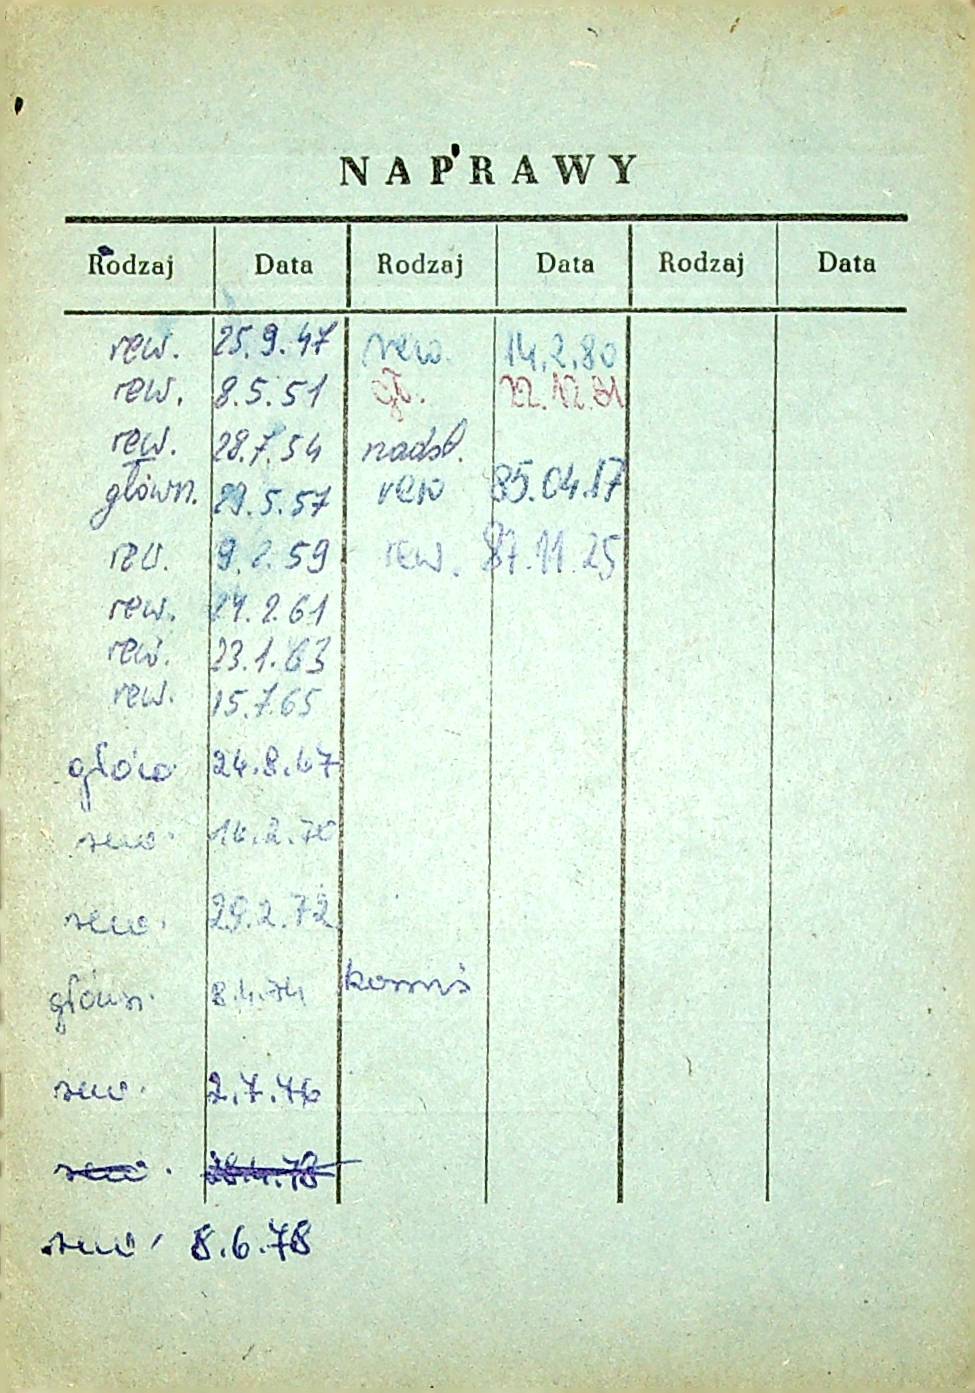 NAPRAWY
Rodzaj Data Rodzaj Data Rodzaj Data
rew. 25.9.47 rew. 14.2.80
rew. 8.5.51 gł. 22.12.81
rew. 28.7.54 nadsł.
główn. 29.5.57 rew 85.04.17
rew. 9.2.59 rew. 87.11.25
rew. 21.2.61
rew. 23.1.63
rew. 15.7.65
główn 24.8.67
rew. 16.2.70
rew. 29.2.72
główn. 8.4.74 komis
rew. 2.7.76
rew. 28.4.78
rew. 8.6.78